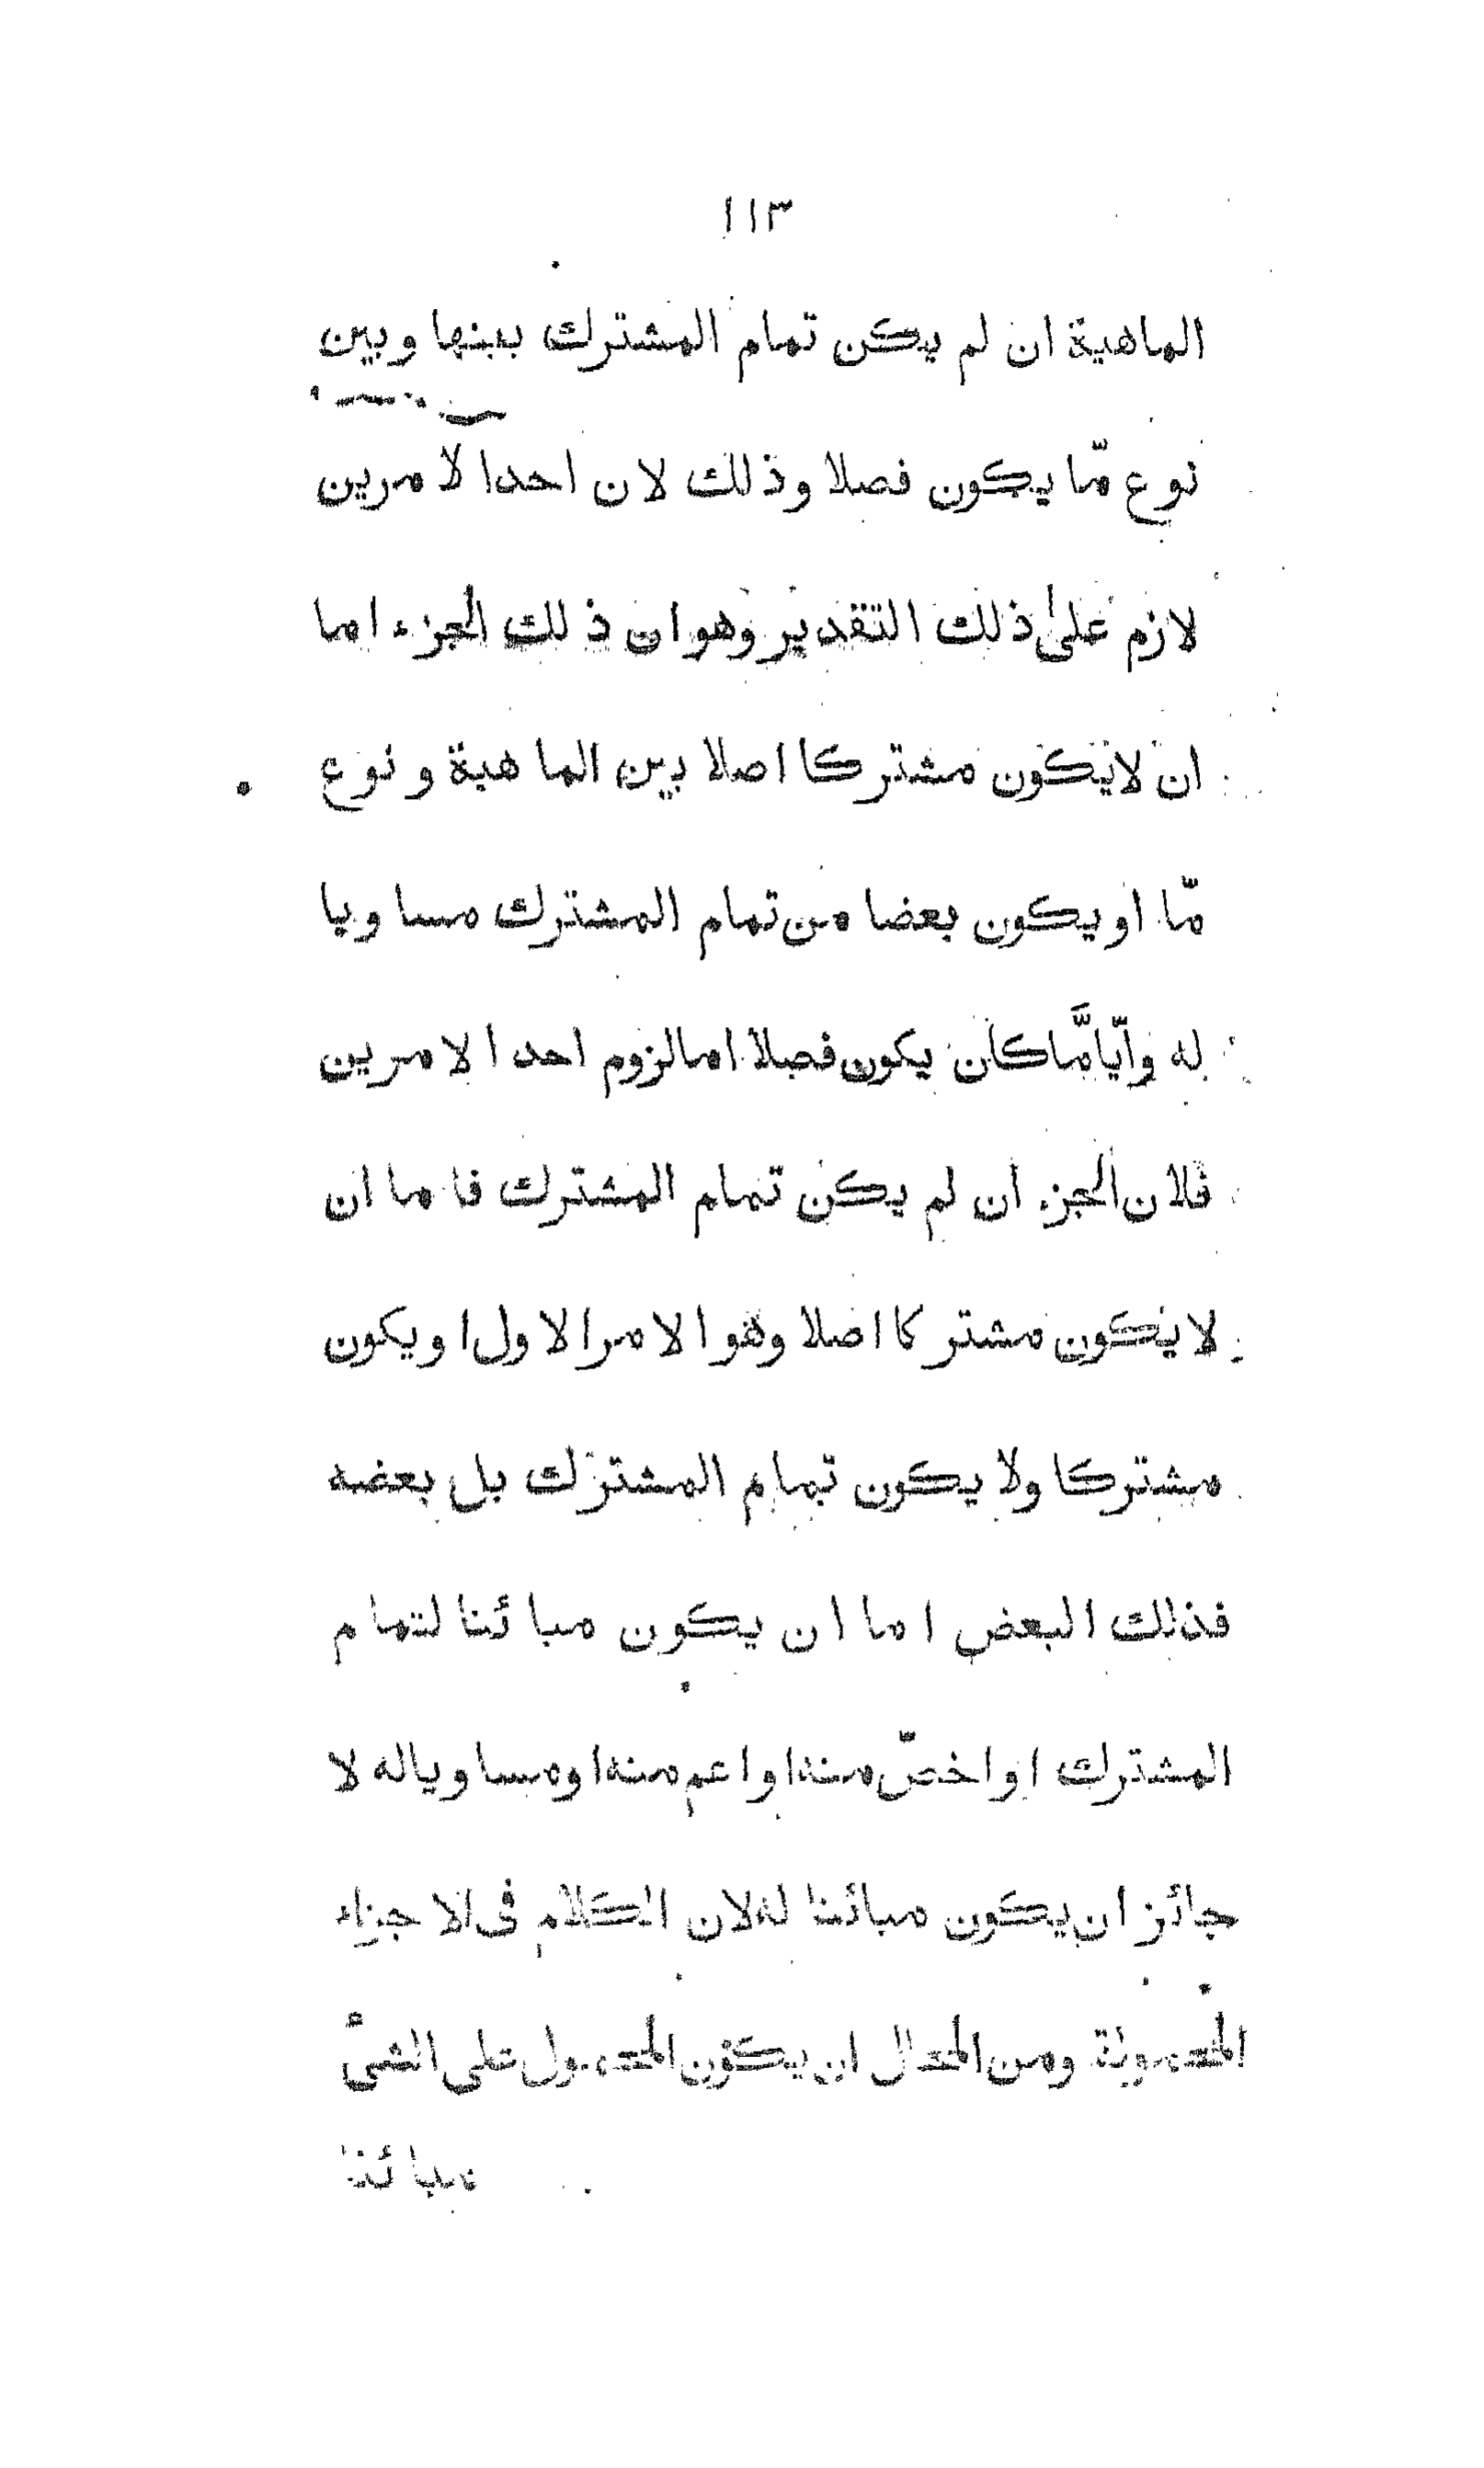 ١١٣
الماهية ان لم يكن تمام المشترك بينها وبين
نوع مّا يكون فصلا وذلك لان احد الامرين
لازم على ذلك التقدير وهو ان ذلك الجزء اما
ان لا يكون مشتركا اصلا بين الماهية ونوع
مّا او يكون بعضا من تمام المشترك مساويا
له وايّامّاكان يكون فصلا امالزوم احد الامرين
فلان الجزء ان لم يكن تمام المشترك فاما ان
لا يكون مشتركا اصلا وهو الامر الاول او يكون
مشتركا ولا يكون تمام المشترك بل بعضه
فذلك البعض اما ان يكون مبائنا لتمام
المشترك او اخصّ منه او اعم منه او مساوياله لا
جائز ان يكون مبائنا له لان الكلام فى الاجزاء
المحمولة ومن المحال ان يكون المحمول على الشىٔ
مبائنا